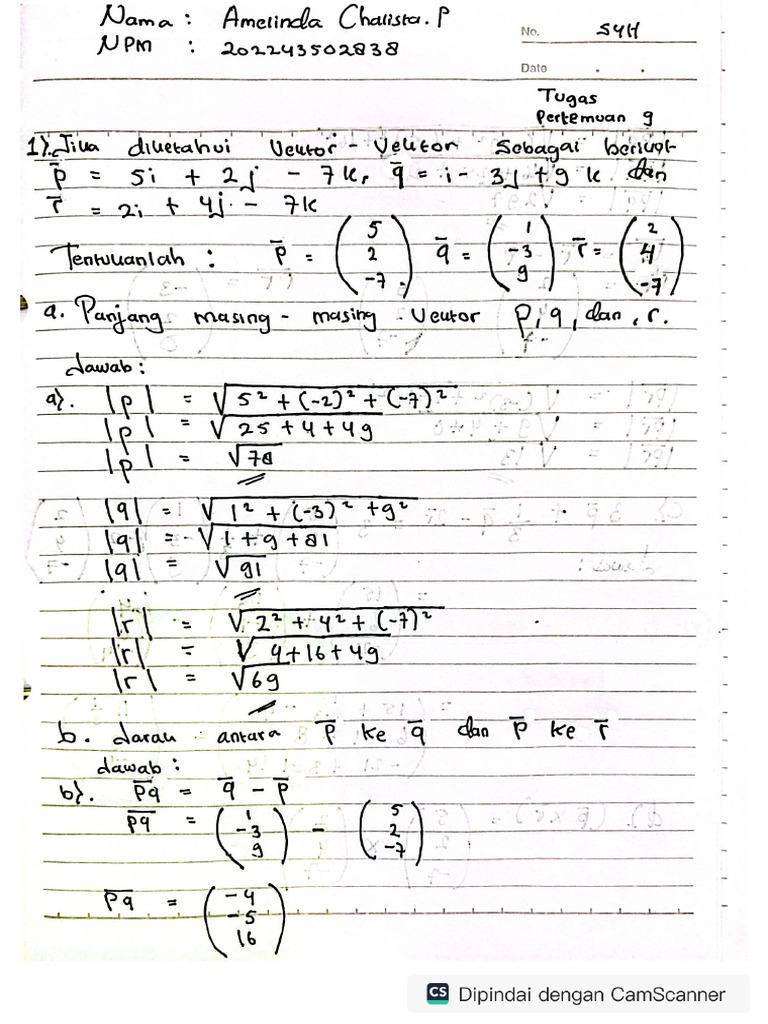 Nama : Amelinda Chalista. P
NPM : 202243502838
No. S4H
Date . .
Tugas
Pertemuan 9
1). Jika diketahui Vektor - Vektor Sebagai berikut
p̅ = 5i + 2j - 7k, q̅ = i - 3j + 9k dan
r̅ = 2i + 4j - 7k
Tentukanlah : p̅ = (5 2 -7) q̅ = (1 -3 9) r̅ = (2 4 -7)
a. Panjang masing - masing Vektor P, q, dan, r.
Jawab :
a). |p| = √5² + (-2)² + (-7)²
|p| = √25 + 4 + 49
|p| = √78
|q| = √1² + (-3)² + 9²
|q| = √1 + 9 + 81
|q| = √91
|r| = √2² + 4² + (-7)²
|r| = √4 + 16 + 49
|r| = √69
b. Jarak antara p̅ ke q̅ dan p̅ ke r̅
Jawab :
b). p̅q̅ = q̅ - p̅
p̅q̅ = (1 -3 9) - (5 2 -7)
p̅q̅ = (-4 -5 16)
CS Dipindai dengan CamScanner